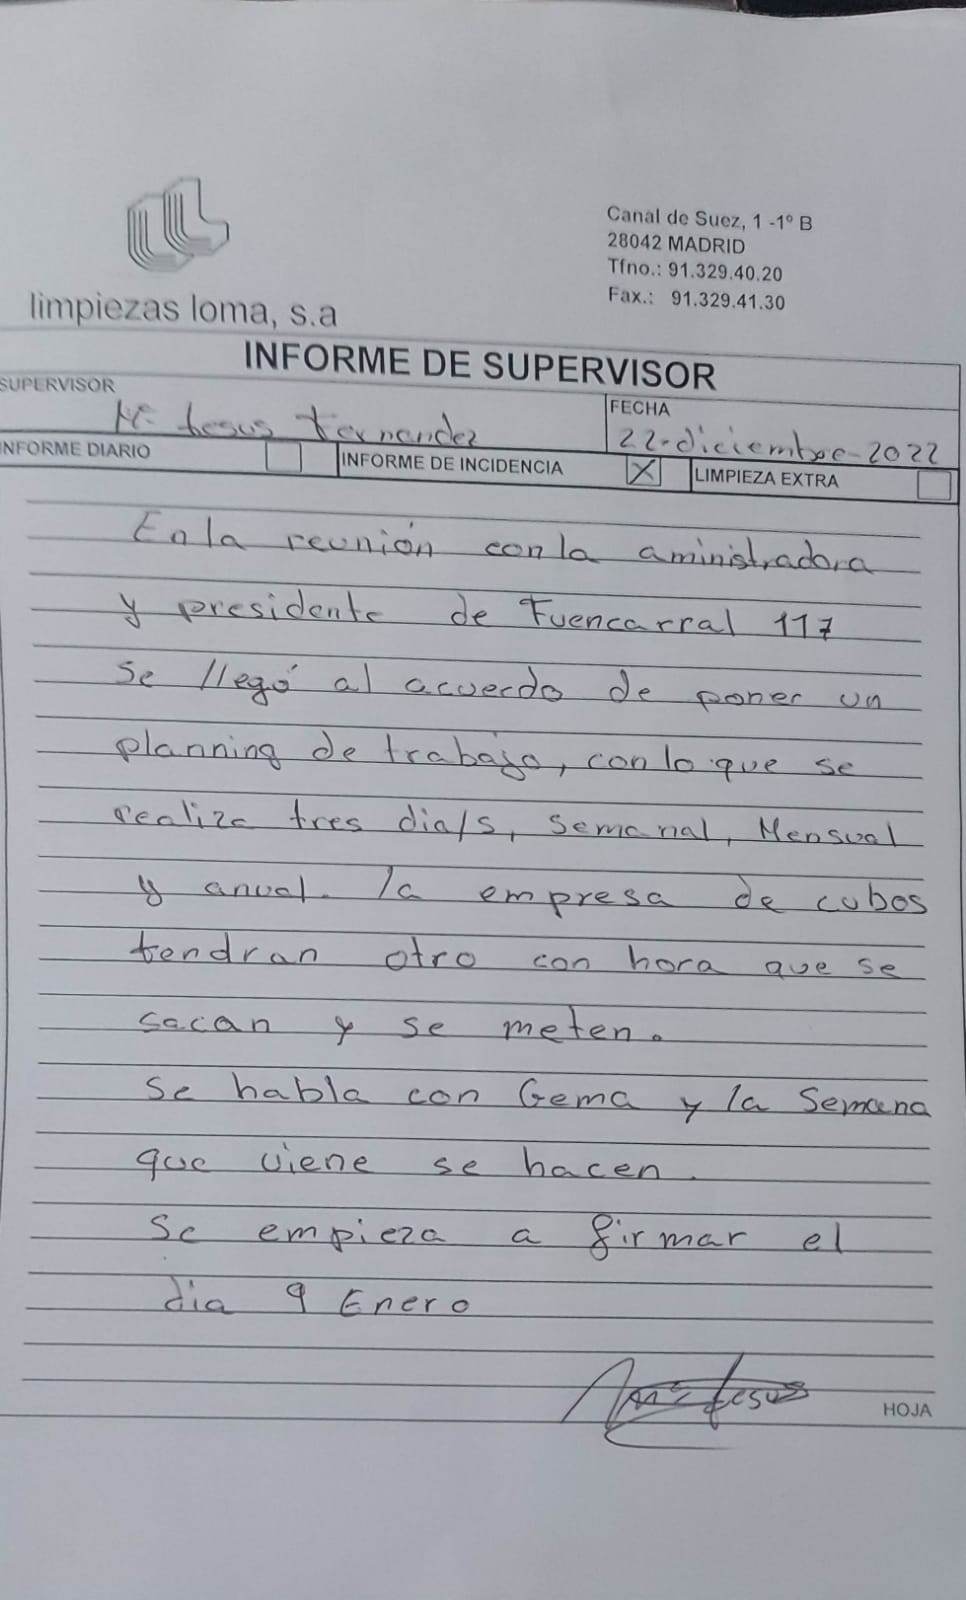 Canal de Suez, 1 -1º B
28042 MADRID
Tfno.: 91.329.40.20
Fax.: 91.329.41.30
limpiezas loma, s.a
INFORME DE SUPERVISOR
SUPERVISOR
Mª Jesus Fernandez
FECHA
22-diciembre-2022
INFORME DIARIO
INFORME DE INCIDENCIA X
LIMPIEZA EXTRA
En la reunión con la aministradora
y presidente de Fuencarral 117
se llegó al acuerdo de poner un
planning de trabajo, con lo que se
realiza tres dia/s, semanal, Mensual
y anual. la empresa de cubos
tendran otro con hora que se
sacan y se meten.
Se habla con Gema y la Semana
que viene se hacen.
Se empieza a firmar el
dia 9 Enero
Mª Jesus
HOJA